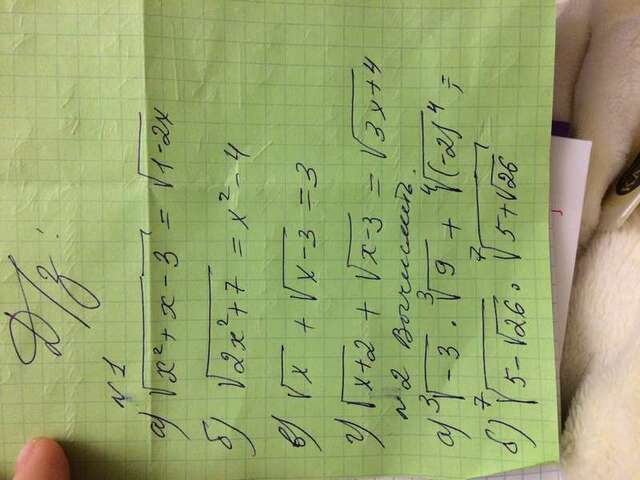 Д/з:
№1
а) √(x² + x - 3) = √(1-2x)
б) √(2x²+7) = x² - 4
в) √x + √(x-3) = 3
г) √(x+2) + √(x-3) = √(3x+4)
№2 Вычислить.
а) ∛(-3) · ∛9 + ∜((-2)⁴) =
б) ⁷√(5-√26) · ⁷√(5+√26)